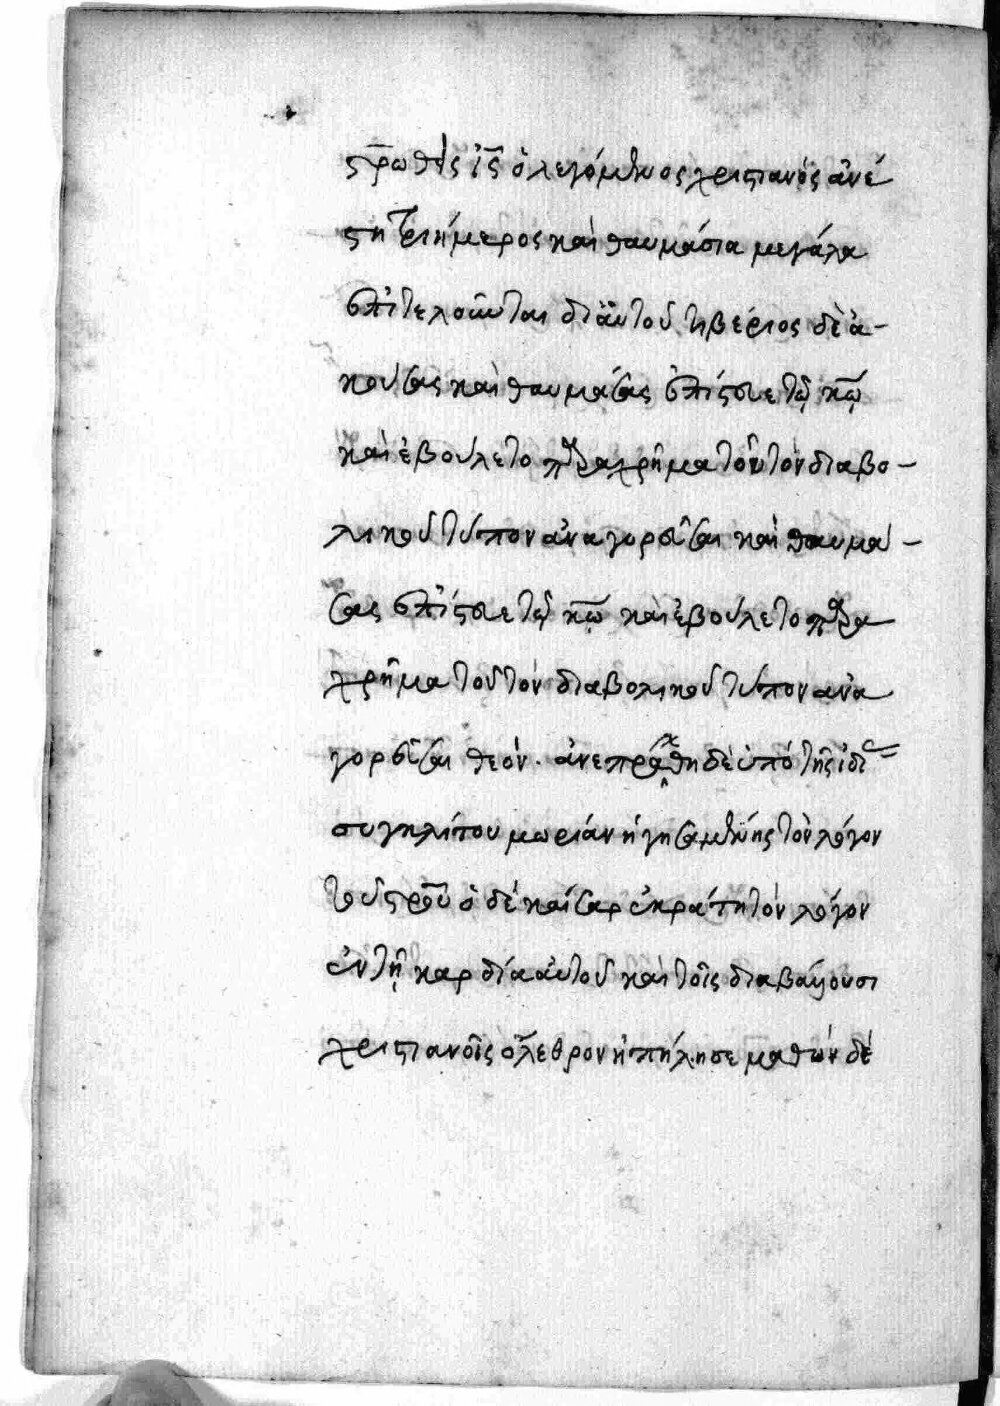 στρωθεὶς ἰς ὁ λεγόμενος χριστιανός ἀνέ
στη τριήμερος καὶ θαυμάσια μεγάλα
ἐπιτελοῦνται δι' αὐτοῦ τηβέριος δὲ ἀ-
κούσας καὶ θαυμάσας ἐπίστευε τῷ κῷ
καὶ ἐβούλετο παραχρῆμα τοῦτον διαβο-
λικοῦ τύπον ἀναγορεῦσαι καὶ θαυμά-
σας ἐπίστευε τῷ κῷ καὶ ἐβούλετο παρα
χρῆμα τοῦτον διαβολικοῦ τύπον ἀνα
γορεῦσαι θεόν. ἀνεπράχθη δὲ ὑπὸ τῆς ἰδί
συγκλίτου μωρίαν ἡγησαμένης τὸν λόγον
τοῦ στροῦ ὁ δὲ καίσαρ ἐκράτη τὸν λόγον
ἐν τῇ καρδία αὐτοῦ καὶ τοῖς διαβάλλουσι
χριστιανοῖς ὄλεθρον ἠπήλησε μαθὼν δὲ